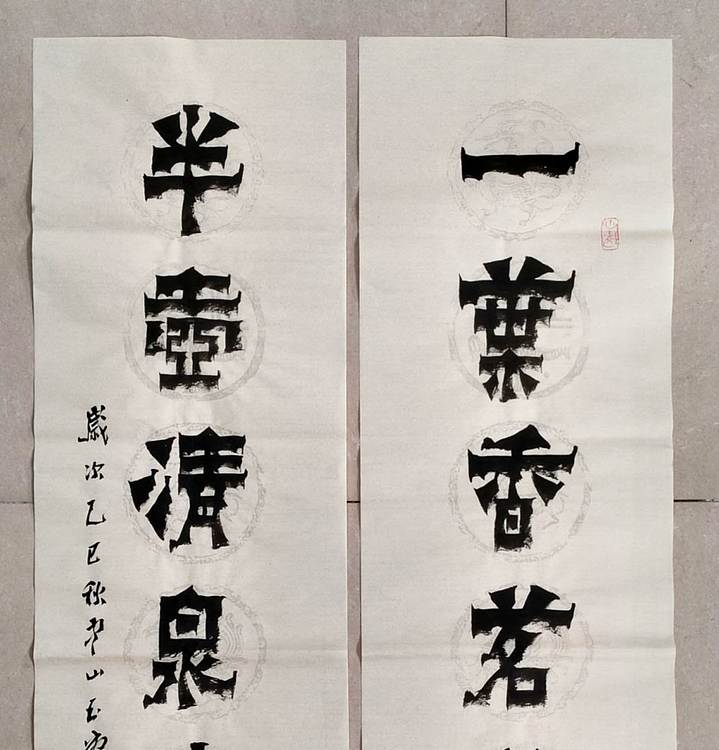 一葉香茗
半壺清泉
歲次乙巳秋